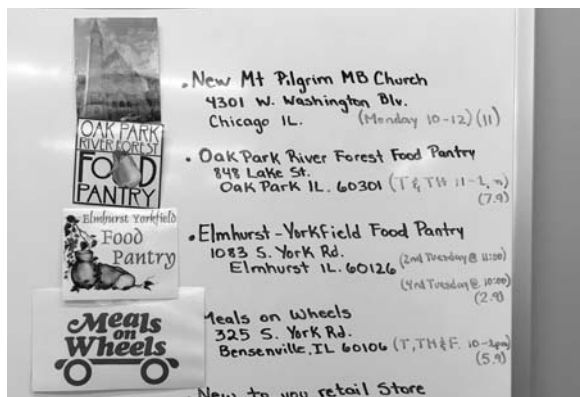 OAK PARK
RIVER FOREST
FOOD
PANTRY
Elmhurst Yorkfield
Food
Pantry
Meals
on
Wheels
• New Mt Pilgrim MB Church
4301 W. Washington Blv.
Chicago IL. (Monday 10-12) (11)
• Oak Park River Forest Food Pantry
848 Lake St.
Oak Park IL. 60301 (T & TH 11-
(7.9)
• Elmhurst-Yorkfield Food Pantry
1083 S. York Rd.
Elmhurst IL. 60126 (2nd Tuesday @ 11:00)
(4rd Tuesday @ 10:00)
(2.9)
Meals on Wheels
325 S. York Rd.
Bensenville, IL 60106 (T, TH & F. 10-2pm)
(5.9)
New to you retail Store